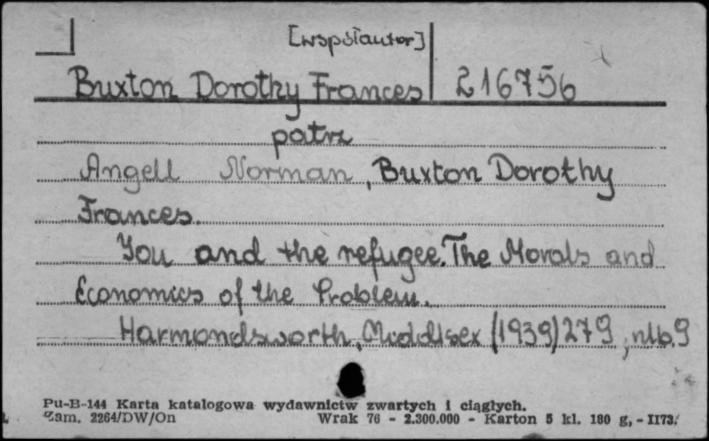 [współautor]
Buxton Dorothy Frances 216756
patrz
Angell Norman, Buxton Dorothy
Frances.
You and the refugee. The Morals and
Economics of the Problem.
Harmondsworth, Middlsex (1939) 279, nlb. 9
Pu-B-144 Karta katalogowa wydawnictw zwartych i ciągłych.
Zam. 2264/DW/On Wrak 76 - 2.300.000 - Karton 5 kl. 180 g, - II73.